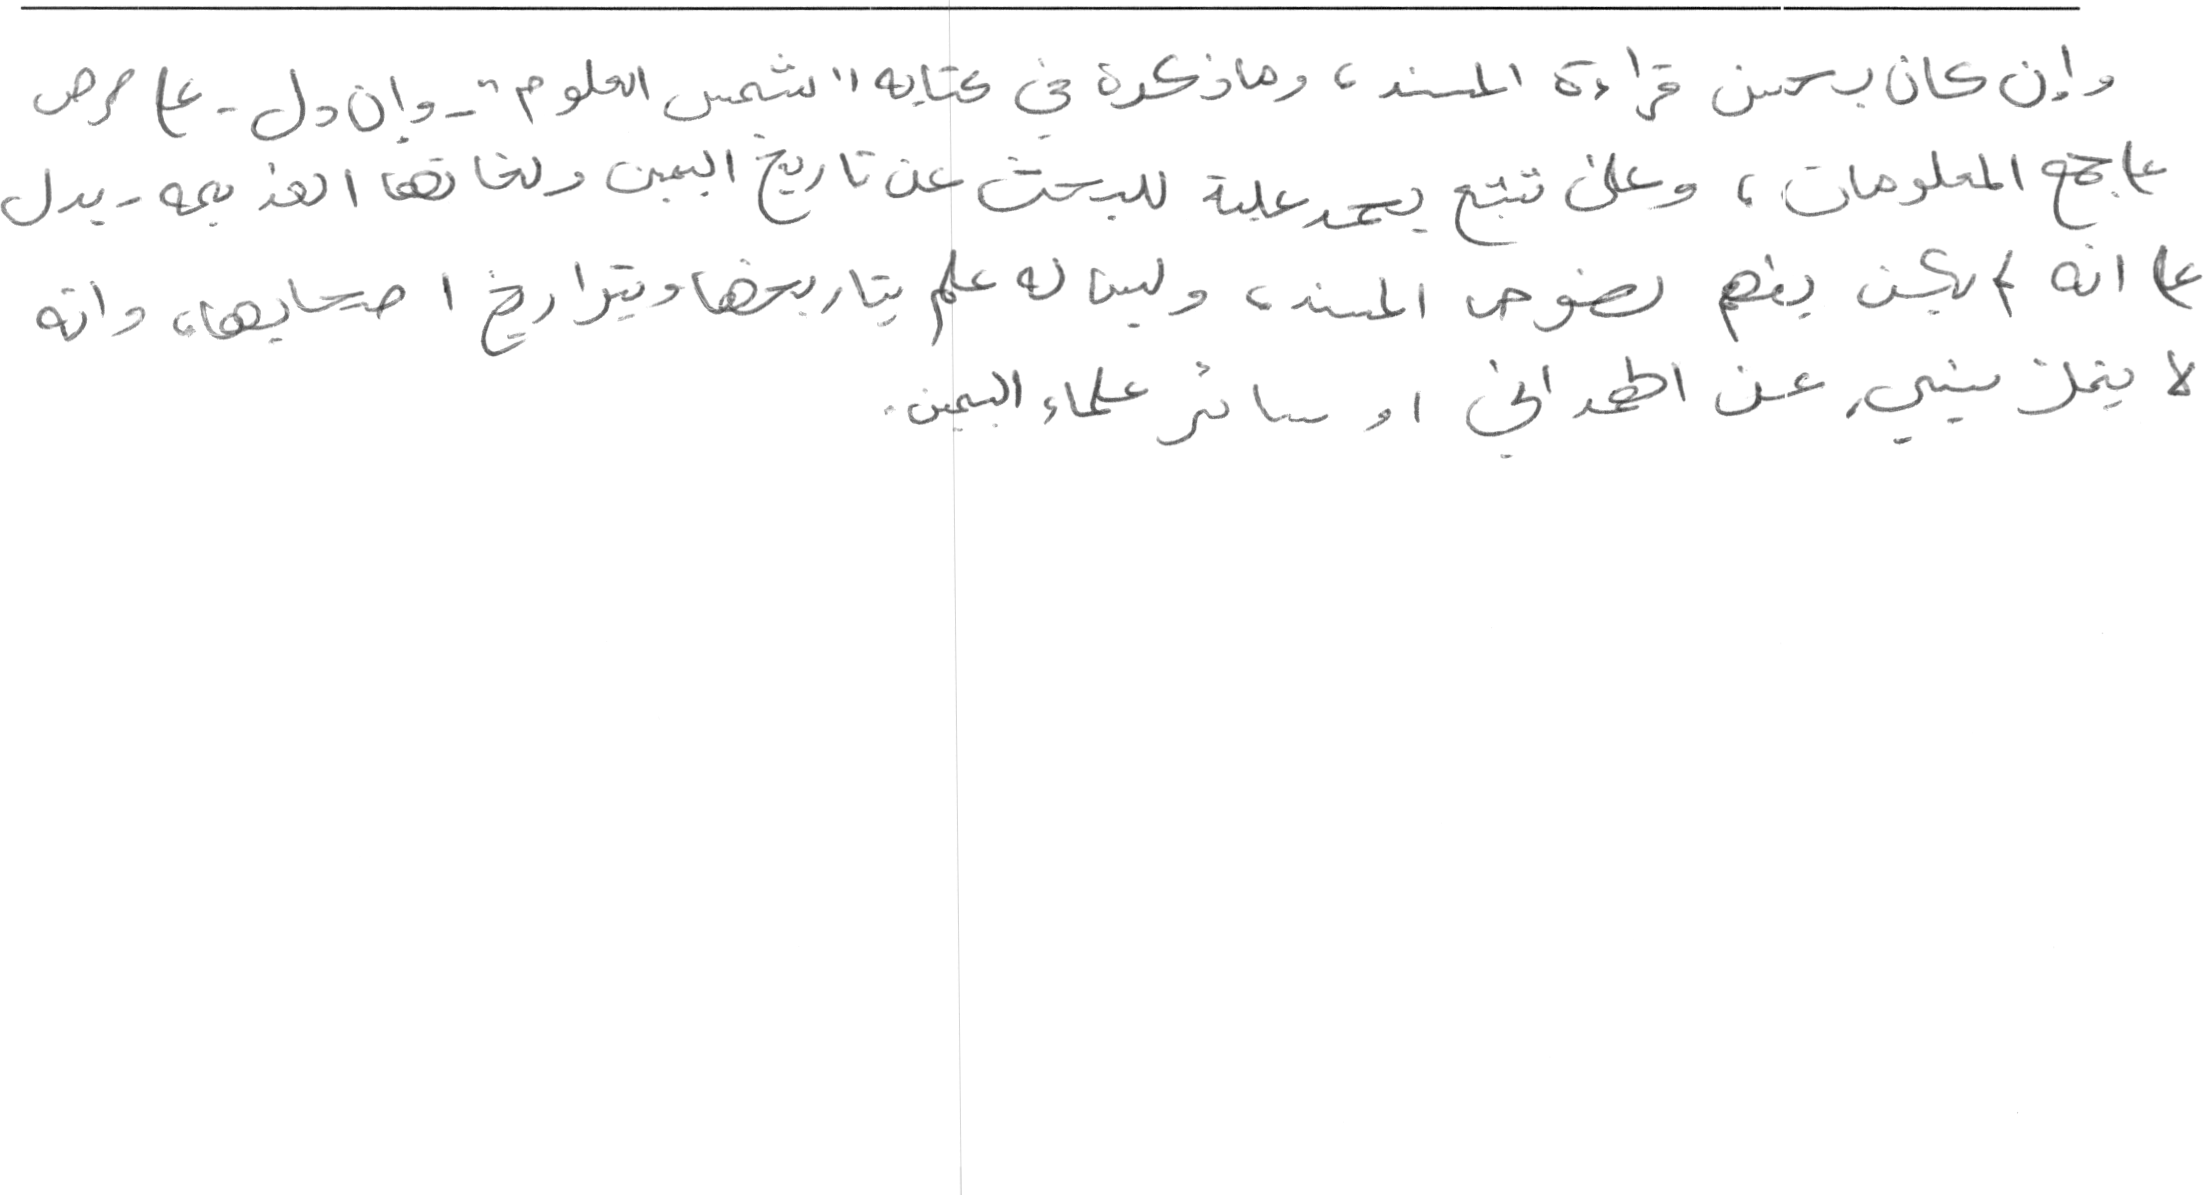 وإن كان يحسن قراءة المسند، وما ذكرة في كتابه "شمس العلوم" - وإن دل - على حرص
على جمع المعلومات، وعلى تتبع يحمد علية للبحث عن تاريخ اليمن ولغاتها القديمه - يدل
على انه لم يكن يفهم نصوص المسند، وليس له علم بتاريخها وبتواريخ اصحابها، وانه
لا يمتاز بشيء عن الهمداني او سائر علماء اليمن.